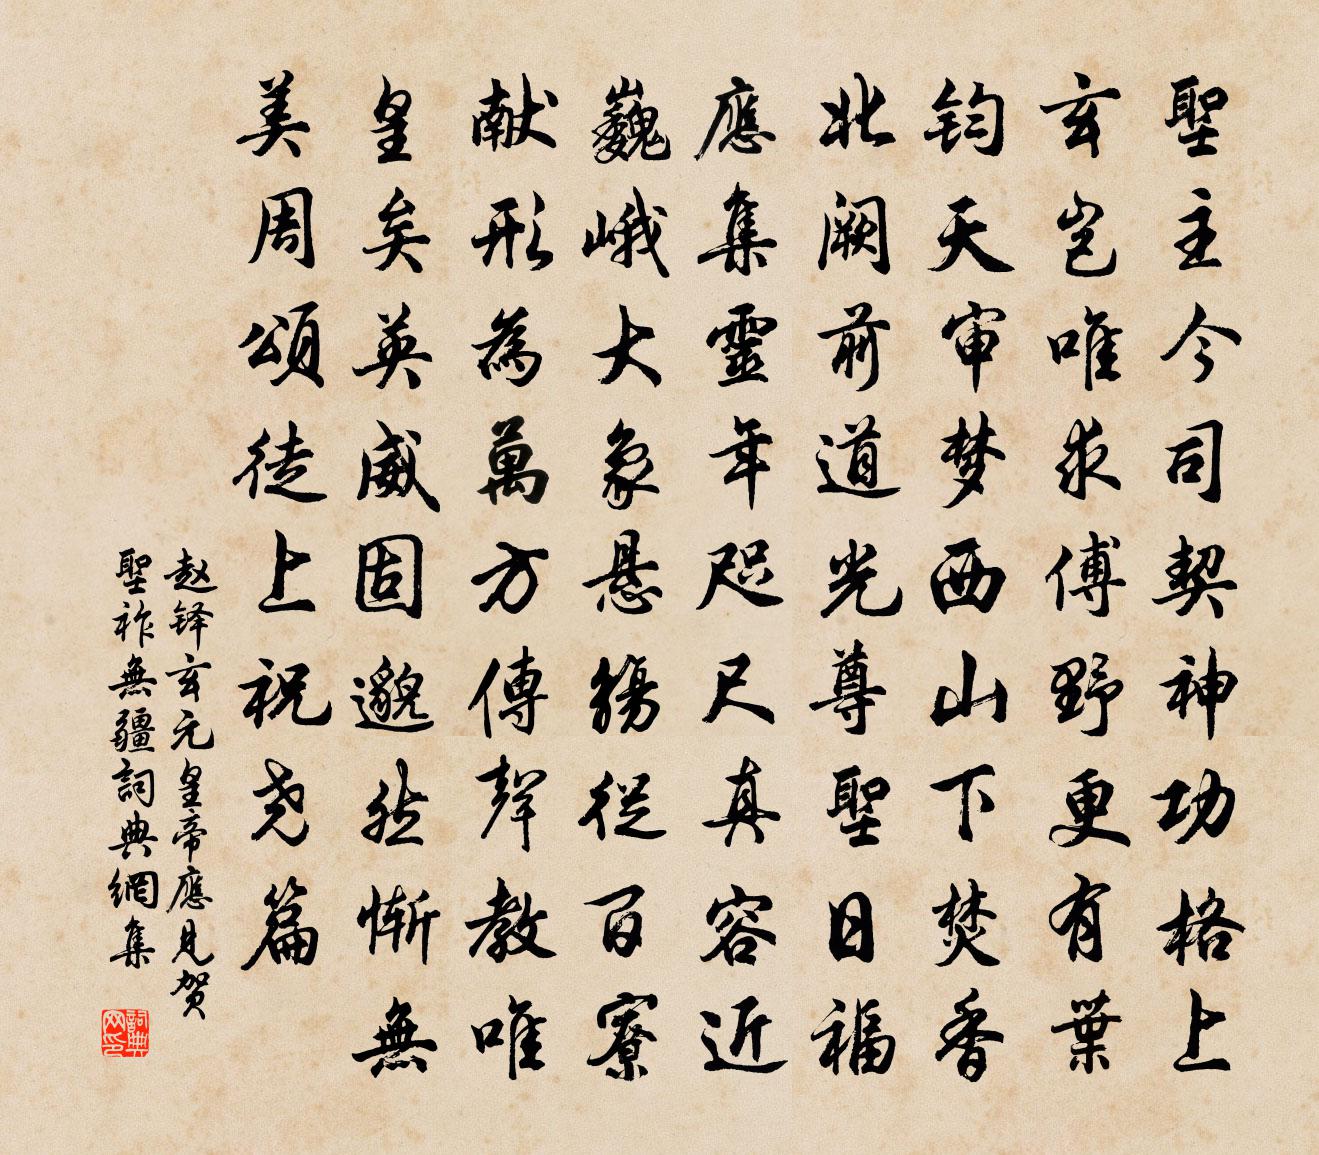 聖主今司契神功格上
玄岂唯求傅野更有葉
钧天审梦西山下焚香
北阙前道光尊聖日福
應集靈年咫尺真容近
巍峨大象悬觴從百寮
献形為萬方傳聲教唯
皇矣英威固邈然惭無
美周頌徒上祝尧篇
赵铎玄元皇帝應見贺
聖祚無疆詞典網集
詞典
网印